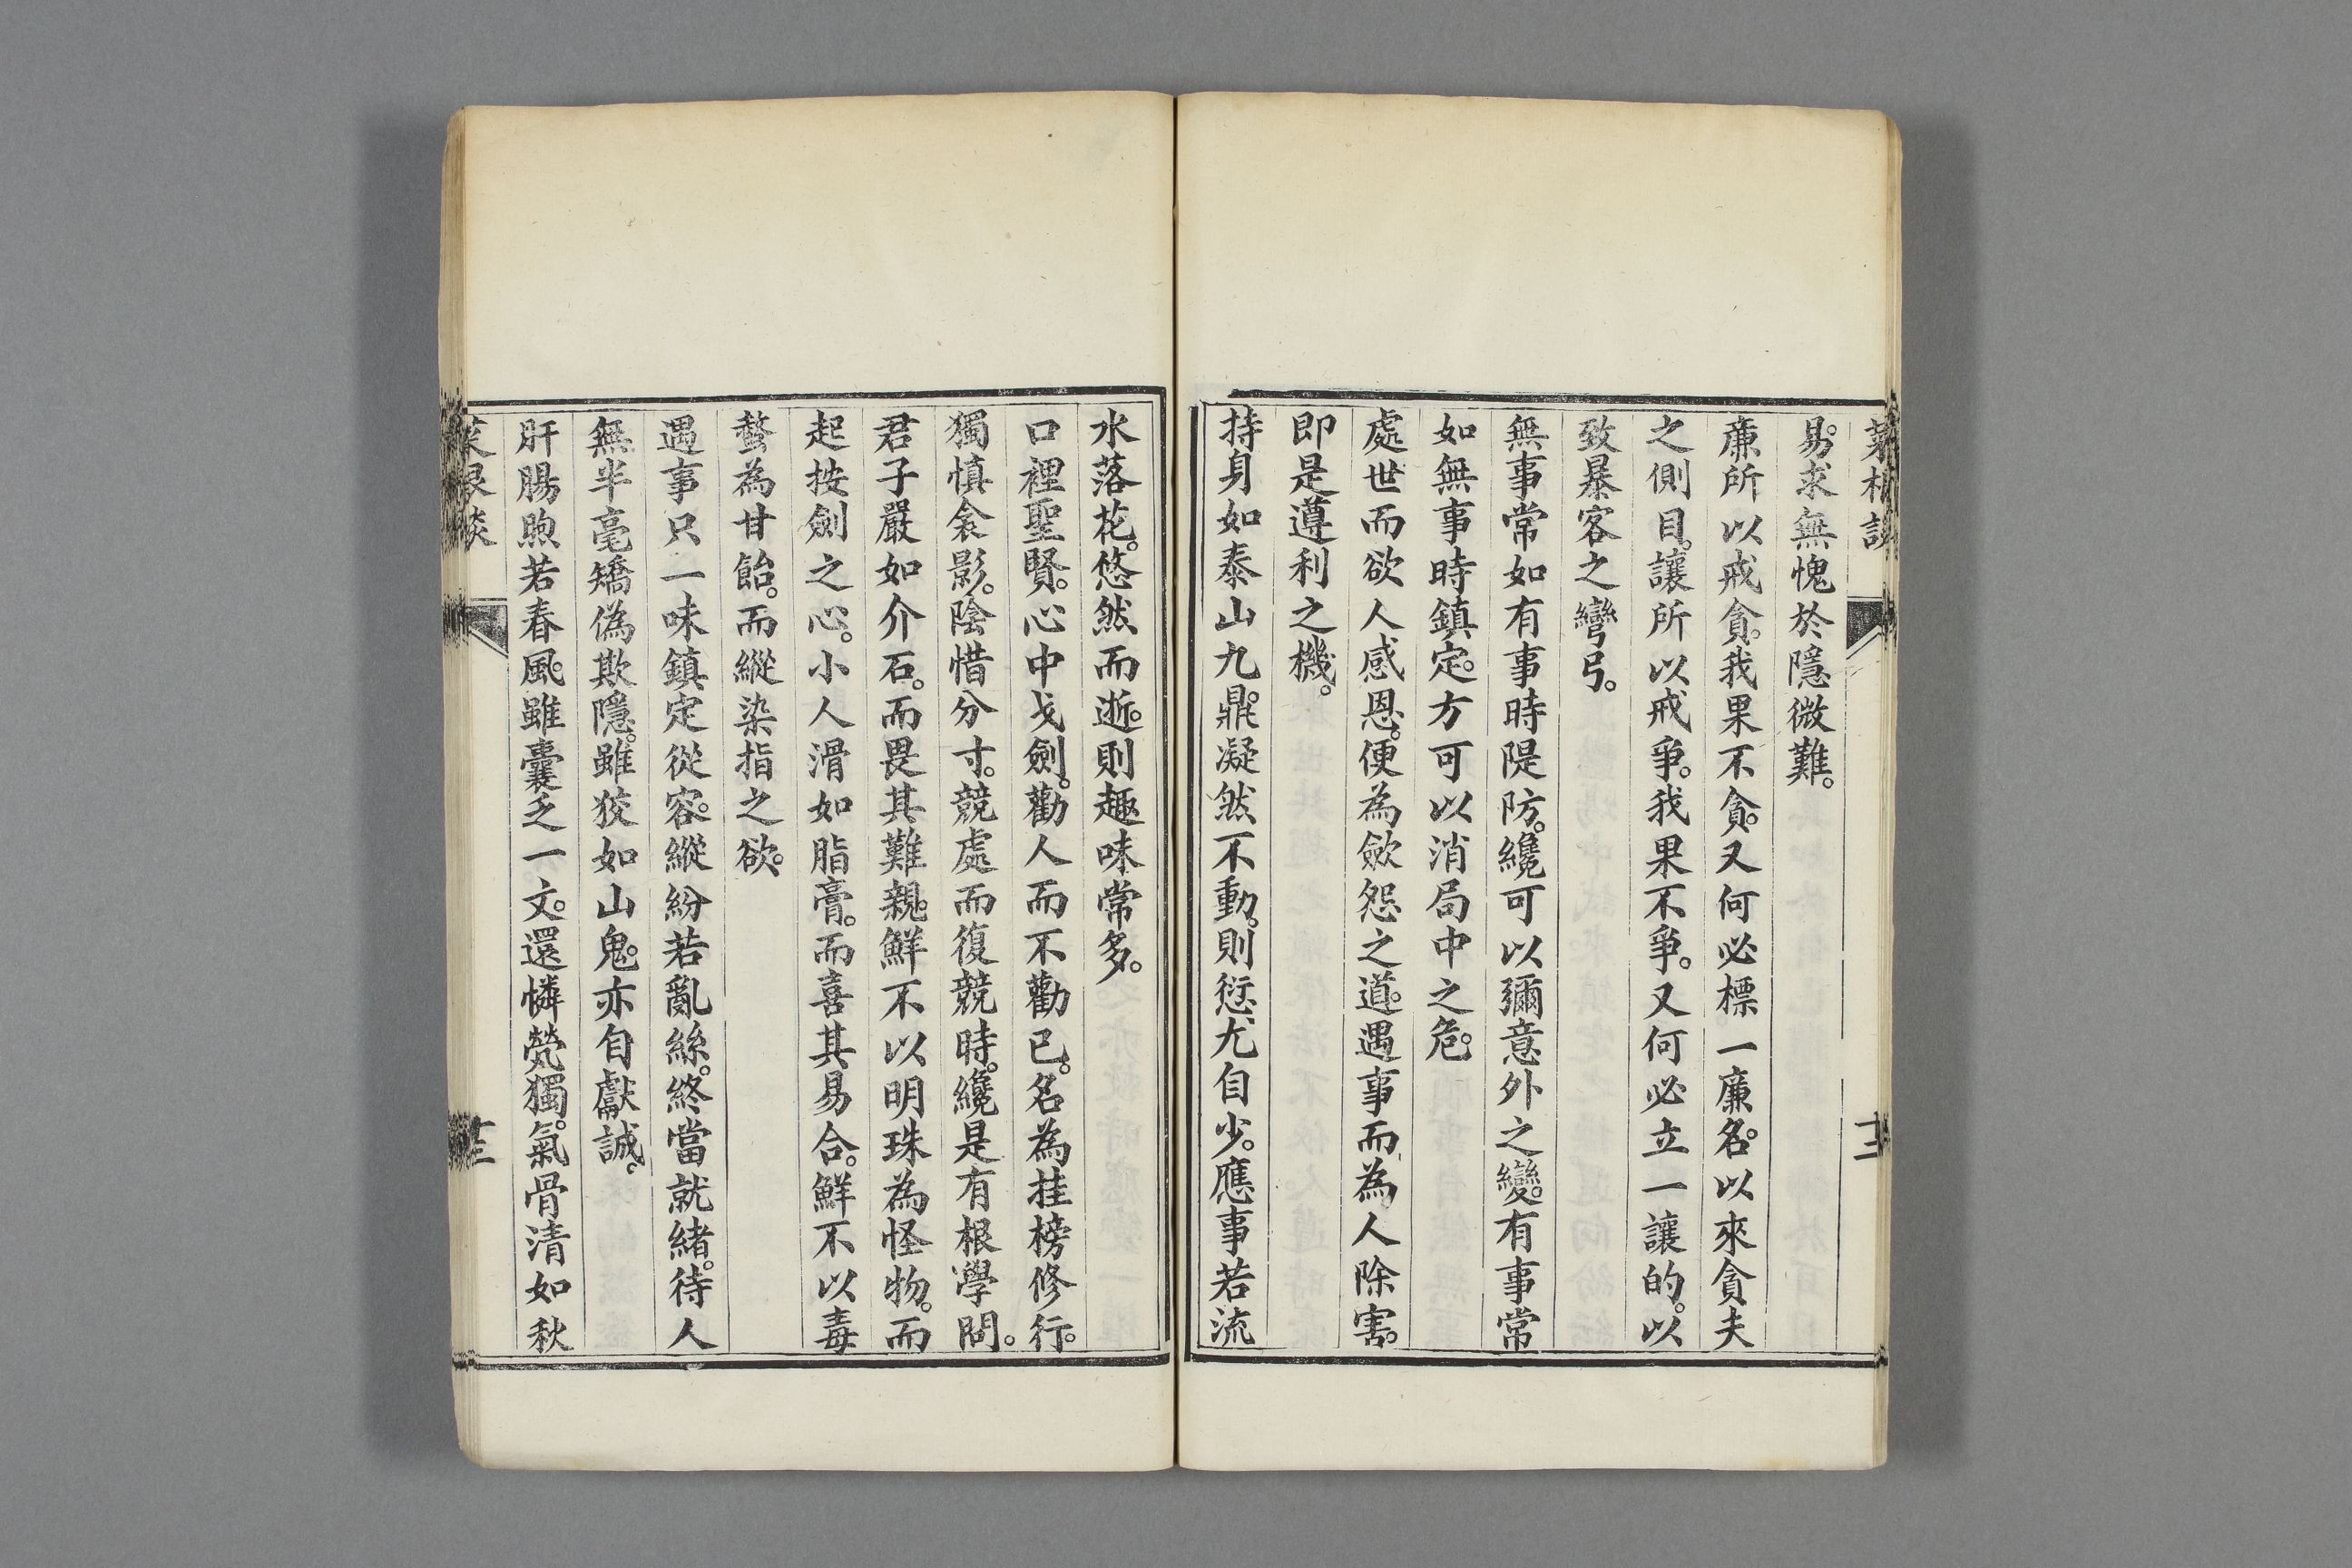 菜根談
十二
易。求無愧於隱微難。
廉所以戒貪。我果不貪。又何必標一廉名。以來貪夫
之側目。讓所以戒爭。我果不爭。又何必立一讓的。以
致暴客之彎弓。
無事常如有事時隄防。纔可以彌意外之變。有事常
如無事時鎮定。方可以消局中之危。
處世而欲人感恩。便為歛怨之道。遇事而為人除害。
即是遵利之機。
持身如泰山九鼎。凝然不動。則愆尤自少。應事若流
水落花。悠然而逝。則趣味常多。
口裡聖賢。心中戈劍。勸人而不勸已。名為挂榜修行。
獨慎衾影。陰惜分寸。競處而復競時。纔是有根學問。
君子嚴如介石。而畏其難親。鮮不以明珠為怪物。而
起按劍之心。小人滑如脂膏。而喜其易合。鮮不以毒
螫為甘飴。而縱染指之欲。
遇事只一味鎮定從容。縱紛若亂絲。終當就緒。待人
無半毫矯偽欺隱。雖狡如山鬼。亦自獻誠。
肝腸煦若春風。雖囊乏一文。還憐煢獨。氣骨清如秋
菜根談
十三